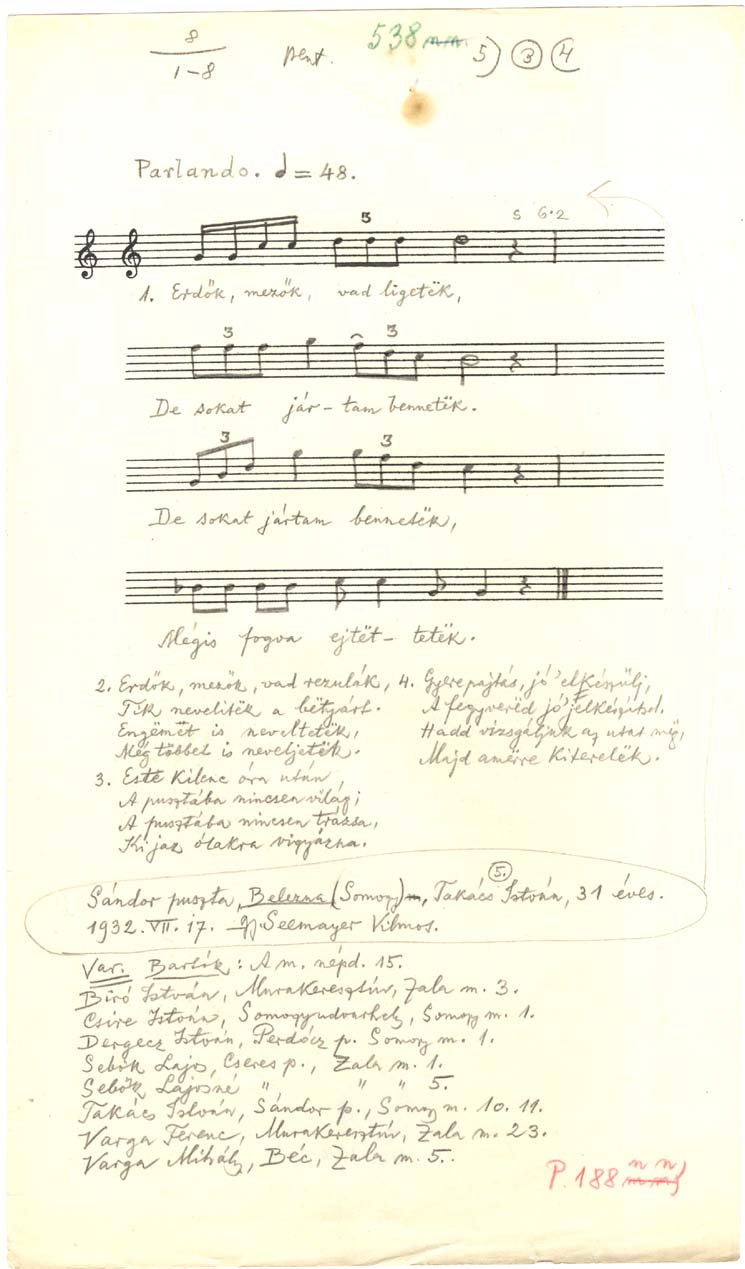 8
1-8
pent.
538
5) 3 4
Parlando. = 48.
3
5 6·2
1. Erdők, mezők, vad ligetëk,
3 3
De sokat jár-tam bennetëk.
3 3
De sokat jártam bennetëk,
Mégis fogva ejtët-tetëk.
2. Erdők, mezők, vad rezulák,
Tik nevelitëk a bëtyárt.
Engëmët is neveltetëk,
Még többet is neveljetëk.
3. Este kilenc óra után,
A pusztába nincsen világ;
A pusztába nincsen trázsa,
Ki jaz ólakra vigyázna.
4. Gyerepajtás, jó elkészülj,
A fegyverëd jó felkészítsd.
Hadd vizsgáljuk az utat mëg,
Majd amërre kiterelëk.
5.
Sándor puszta, Belezna (Somogy), Takács István, 31 éves.
1932. VII. 17. gy. Seemayer Vilmos.
Var. Bartók: A m. népd. 15.
Biró István, Murakeresztúr, Zala m. 3.
Csire István, Somogyudvarhely, Somogy m. 1.
Dergecz István, Perdócz p. Somogy m. 1.
Sebők Lajos, Cseres p., Zala m. 1.
Sebők Lajosné " " " 5.
Takács István, Sándor p., Somogy m. 10. 11.
Varga Ferenc, Murakeresztúr, Zala m. 23.
Varga Mihály, Béc, Zala m. 5.
P. 188 n n)